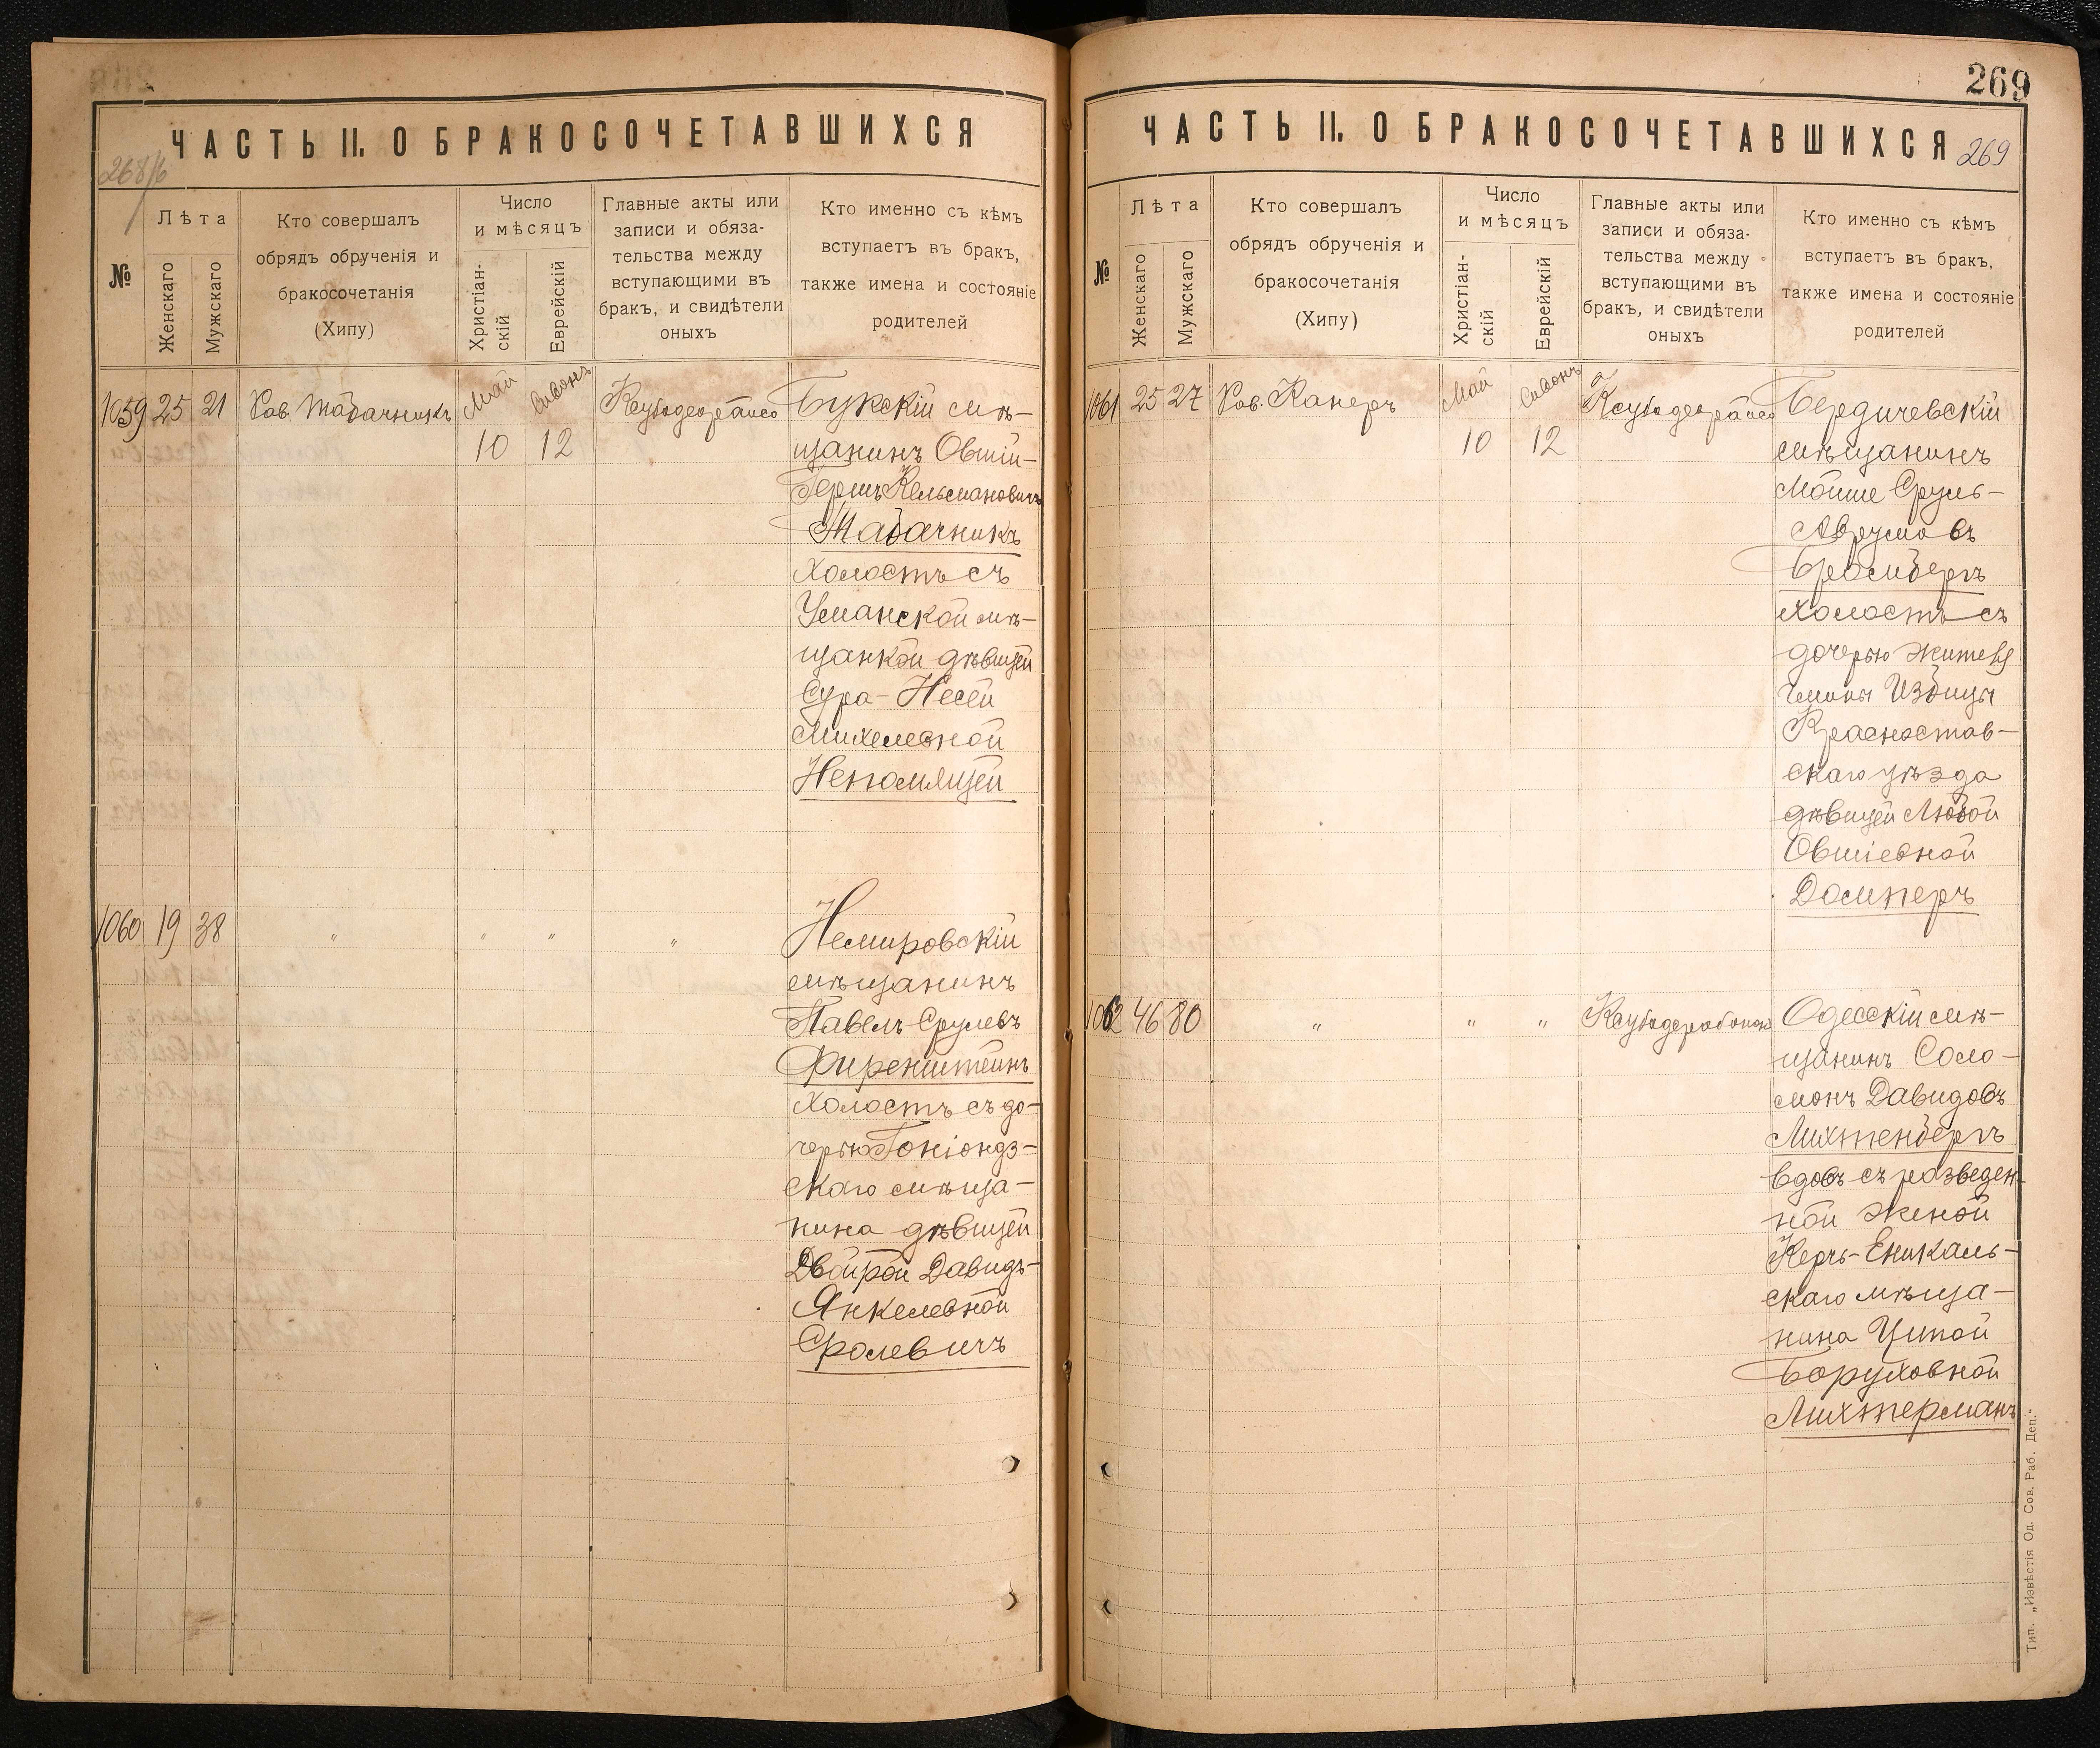 ЧАСТЬ II. О БРАКОСОЧЕТАВШИХСЯ
№
Лѣта
Женскаго
Мужскаго
Кто совершалъ
обрядъ обрученія и
бракосочетанія
(Хипу)
Число
и мѣсяцъ
Христіан-
скій
Еврейскій
Главные акты или
записи и обяза-
тельства между
вступающими въ
бракъ, и свидѣтели
оныхъ
Кто именно съ кѣмъ
вступаетъ въ бракъ,
также имена и состояніе
родителей
1059 25 21 Рав. Табачникъ
Май
10
Сивонъ
12
Букскій мѣ-
щанинъ Овшій-
Гершъ Кельмановичъ
Табачникъ
холостъ съ
Уманской мѣ-
щанкой дѣвицей
Сура-Несей
Михелевной
Непомящей
1060 19 38 " " " "
Немировскій
мѣщанинъ
Павелъ Срулевъ
Фиренштейнъ
холостъ съ до-
черью Гоніондз-
скаго мѣща-
нина дѣвицей
Двойрой Давидъ-
Янкелевной
Сролевичъ
269
ЧАСТЬ II. О БРАКОСОЧЕТАВШИХСЯ
269
№
Лѣта
Женскаго
Мужскаго
Кто совершалъ
обрядъ обрученія и
бракосочетанія
(Хипу)
Число
и мѣсяцъ
Христіан-
скій
Еврейскій
Главные акты или
записи и обяза-
тельства между
вступающими въ
бракъ, и свидѣтели
оныхъ
Кто именно съ кѣмъ
вступаетъ въ бракъ,
также имена и состояніе
родителей
1061 25 27 Рав. Канеръ
Май
10
Сивонъ
12
Бердичевскій
мѣщанинъ
Мойше Сруль-
Аврумовъ
холостъ съ
дочерью жителя
гмины Избицы
Красностав-
скаго уѣзда
дѣвицей Любой
Овшіевной
Домперъ
1062 46 80 " " "
Одесскій мѣ-
щанинъ Соло-
монъ Давидовъ
Лихтенбергъ
вдовъ съ разведен-
ной женой
Керчь-Еникаль-
скаго мѣща-
нина Ципой
Боруховной
Лихтерманъ
Тип. „Извѣстія Од. Сов. Раб. Деп."